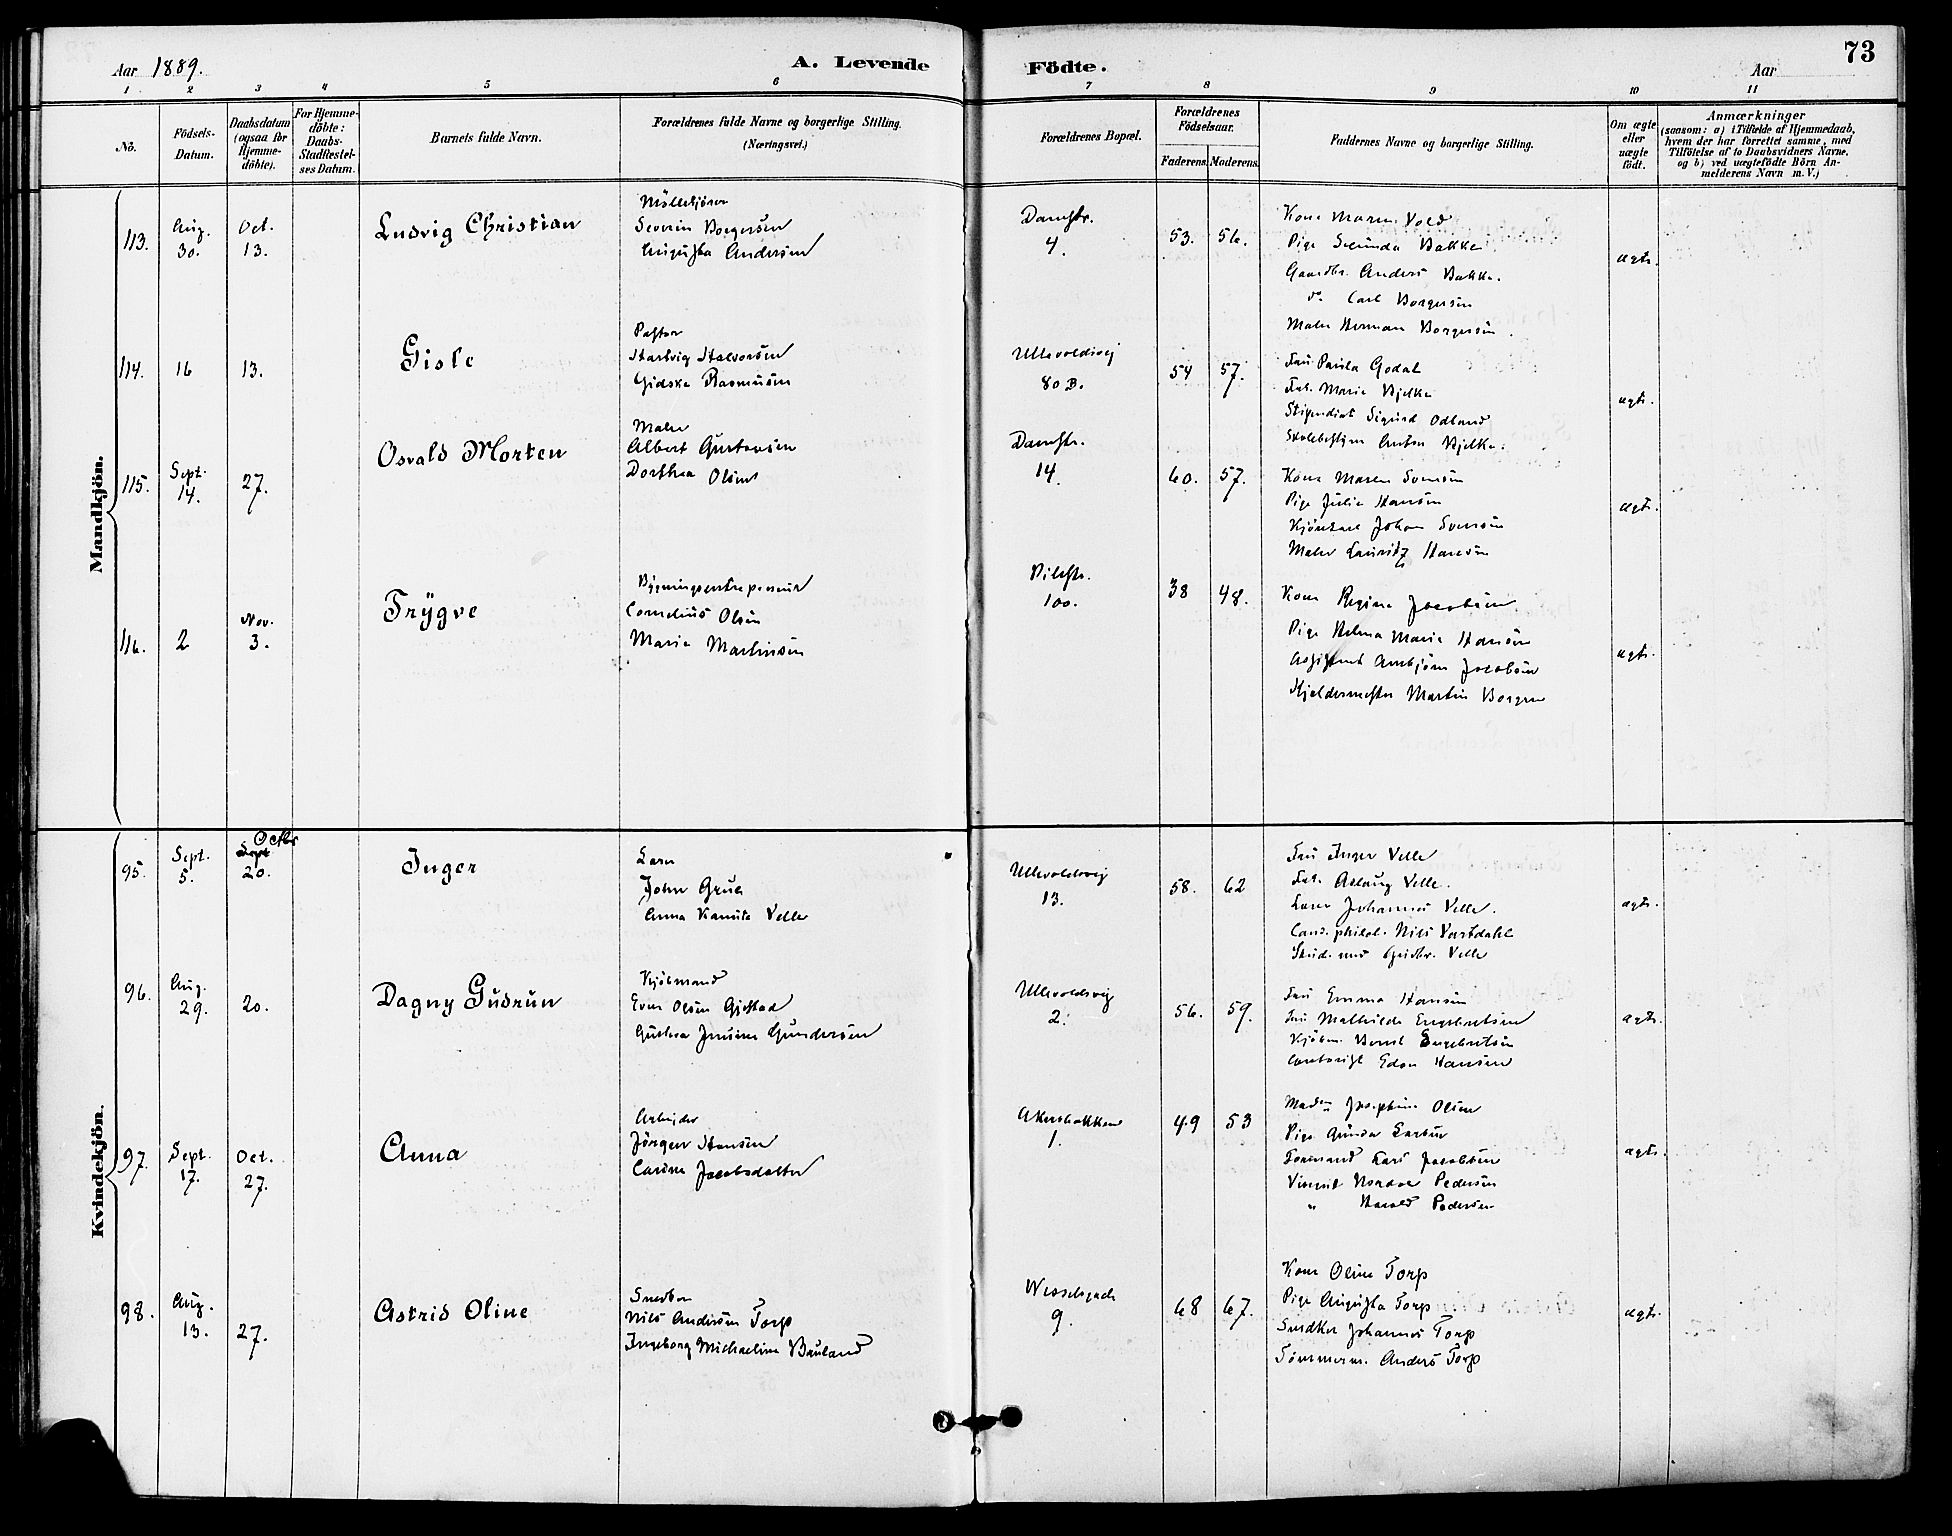 Aar 1889.
A. Levende
Födte.
Aar
73
1. 2 3 4 5 6 7 8 9 10 11
No.
Födsels-
Datum.
Daabsdatum
(ogsaa for
Hjemme-
döbte).
For Hjemme-
döbte:
Daabs-
Stadfæstel-
ses Datum.
Barnets fulde Navn.
Forældrenes fulde Navne og borgerlige Stilling.
(Næringsvei.)
Forældrenes Bopæl.
Forældrenes
Födselsaar.
Faderens. Moderens.
Faddernes Navne og borgerlige Stilling.
Om ægte
eller
uægte
födt.
Anmærkninger
(saasom: a) i Tilfælde af Hjemmedaab,
hvem der har forrettet samme, med
Tilföielse af to Daabsvidners Navne,
og b) ved uægtefödte Börn An-
melderens Navn m. V.)
Mandkjön.
113.
Aug.
30.
Oct.
13.
Ludvig Christian
Severin Borgersen
Augusta Andersen
Damstr.
4.
53. 56.
Kone Maren Vold
Pige Bakke
Gaardbr. Anders Bakke.
do. Carl Borgersen
Maler Herman Borgersen.
ægte.
114.
16
13.
Gisle
Pastor
Hartvig Halvorsen
Gidske Rasmusen
Ullevoldsvej
80 B.
54 57.
Fru Paula Godal
Frk. Marie Bjelke
Stipendiat Sigurd Odland
Skolebestyrer Anton Bjelke.
ægte.
115.
Sept.
14.
27.
Osvald Morten
Maler
Albert Gustavsen
Dorthea Olsen
Damstr.
14.
60. 57.
Kone Maren Svensen
Pige Julie Hansen
Johan Svensen
Maler Lauritz Hansen
ægte.
116.
2
Nov.
3.
Trygve
Bygningsentreprenör
Cornelius Olsen
Marie Martinsen
Pilestr.
100.
38 48.
Kone Regine Jacobsen
Pige Helma Marie Hansen
Assistent Arnbjörn Jacobsen
Kjeldermester Martin Borgen
ægte.
Kvindekjön.
95.
Sept.
5.
Octbr
Sept
20.
Inger
Lærer
John Grue
Anna Kamila Velle
Ullevoldsvej
13.
58. 62
Fru Inger Velle
Frk. Aslaug Velle.
Lærer Johannes Velle.
Cand. philol. Nils Vartdahl
Velle
ægte.
96.
Aug.
29.
20.
Dagny Gudrun
Kjöbmand
Even Olsen Gjestad
Gustava Jensine Gundersen
Ullevoldsvej
2.
56. 59.
Fru Emma Hansen
Fru Mathilde Engebretsen
Kjöbm. Bernt Engebretsen
Contorist Edon Hansen
ægte.
97.
Sept.
17.
Oct.
27.
Anna
Arbejder
Jörgen Hansen
Carine Jacobsdatter
Akersbakken
1.
49 53
Madm Josephine Olsen
Pige Gunda Larsen
Formand Lars Jacobsen
Nordor Pedersen
" Harald Pedersen
ægte.
98.
Aug.
13.
27.
Astrid Oline
Snedker
Nils Andersen Torp
Ingeborg Michaeline Bauland
Wesselsgade
9.
68 67.
Kone Oline Torp
Pige Augusta Torp
Snedker Johannes Torp
Tömmerm. Anders Torp
ægte.